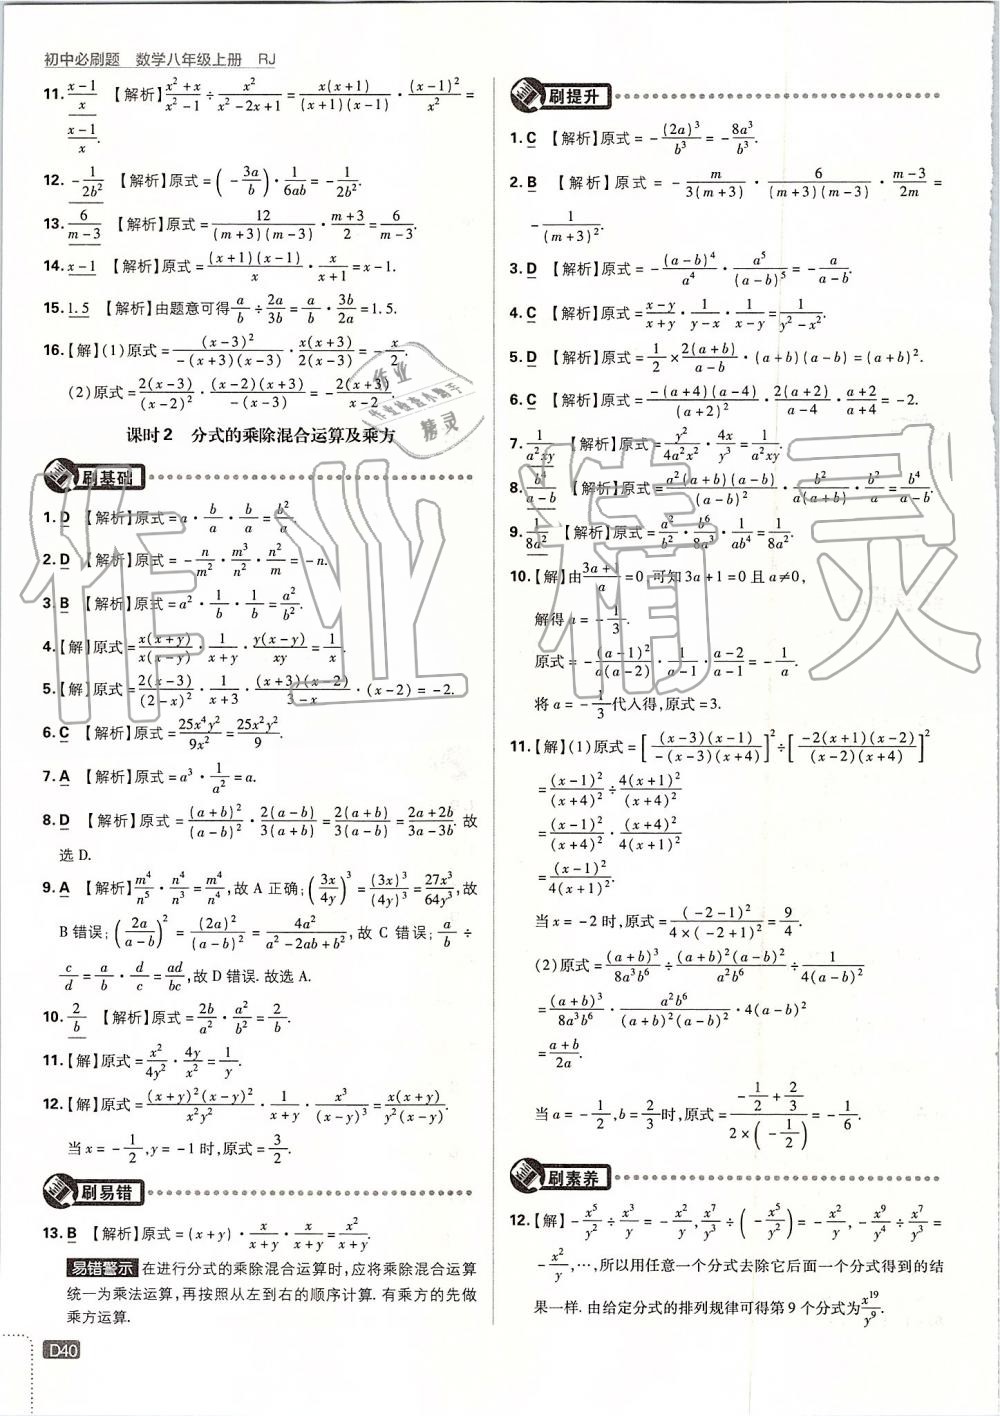 初中必刷题 数学八年级上册 RJ
11. (x-1)/x 【解析】(x²+x)/(x²-1)÷x²/(x²-2x+1)=x(x+1)/((x+1)(x-1))·(x-1)²/x²=
(x-1)/x.
12. -1/(2b²) 【解析】原式=(-3a/b)·1/(6ab)=-1/(2b²).
13. 6/(m-3) 【解析】原式=12/((m+3)(m-3))·(m+3)/2=6/(m-3).
14. x-1 【解析】原式=(x+1)(x-1)/x·x/(x+1)=x-1.
15. 1.5 【解析】由题意可得a/b÷2a/3b=a/b·3b/2a=1.5.
16.【解】(1)原式=(x-3)²/(-(x+3)(x-3))·x(x+3)/(2(x-3))=-x/2.
(2)原式=2(x-3)/(x-2)²·(-(x-2)(x+3))/(x-3)=-2(x+3)/(x-2).
课时2 分式的乘除混合运算及乘方
刷基础
1. D 【解析】原式=a·b/a·b/a=b²/a.
2. D 【解析】原式=-n/m²·m³/n²·n²/m=-n.
3. B 【解析】原式=a²·1/b·1/b=a²/b².
4.【解】原式=x(x+y)/(x(x-y))·1/(x+y)·y(x-y)/(xy)=1/x.
5.【解】原式=2(x-3)/(2-x)²·1/(x+3)·(x+3)(x-2)/(3-x)·(x-2)=-2.
6. C 【解析】原式=25x⁴y²/9x²=25x²y²/9.
7. A 【解析】原式=a³·1/a²=a.
8. D 【解析】原式=(a+b)²/(a-b)²·2(a-b)/(3(a+b))=2(a+b)/(3(a-b))=(2a+2b)/(3a-3b). 故
选 D.
9. A 【解析】m⁴/n⁵·n⁴/n³=m⁴/n⁴,故 A 正确;(3x/4y)³=(3x)³/(4y)³=27x³/64y³,故
B 错误;(2a/(a-b))²=(2a)²/(a-b)²=4a²/(a²-2ab+b²),故 C 错误;a/b÷
c/d=a/b·d/c=ad/bc,故 D 错误. 故选 A.
10. 2/b 【解析】原式=2b/a²·a²/b²=2/b.
11.【解】原式=x²/4y²·4y/x²=1/y.
12.【解】原式=(x+y)²(x-y)²/(x²y²)·1/(x+y)·x³/(x-y)³=x(x+y)/(y²(x-y)).
当 x=-1/2,y=-1 时,原式=3/2.
刷易错
13. B 【解析】原式=(x+y)·x/(x+y)·x/(x+y)=x²/(x+y).
易错警示 在进行分式的乘除混合运算时,应将乘除混合运算
统一为乘法运算,再按照从左到右的顺序计算. 有乘方的先做
乘方运算.
D40
刷提升
1. C 【解析】原式=-(2a)³/b³=-8a³/b³.
2. B 【解析】原式=-m/(3(m+3))·6/((m+3)(m-3))·(m-3)/2m=
-1/(m+3)².
3. D 【解析】原式=-(a-b)⁴/a⁴·a⁵/(a-b)⁵=-a/(a-b).
4. C 【解析】原式=(x-y)/(x+y)·1/(y-x)·1/(x-y)=1/(y²-x²).
5. D 【解析】原式=1/2×2(a+b)/(a-b)·(a+b)(a-b)=(a+b)².
6. C 【解析】原式=-(a+4)(a-4)/(a+2)²·2(a+2)/(a-4)·(a+2)/(a+4)=-2.
7. 1/(a²xy) 【解析】原式=y²/(4a²x²)·4x/y³=1/(a²xy).
8. b⁴/(a-b) 【解析】原式=a²(a+b)(a-b)/(a-b)²·b²/(a(a+b))·b²/a=b⁴/(a-b).
9. 1/(8a²) 【解析】原式=a²/b²·b⁶/8a³·1/(ab⁴)=1/(8a²).
10.【解】由(3a+1)/a=0,可知 3a+1=0 且 a≠0,
解得 a=-1/3.
原式=-(a-1)²/(a(a-2))·1/(a-1)·(a-2)/(a-1)=-1/a.
将 a=-1/3代入得,原式=3.
11.【解】(1)原式=[(x-3)(x-1)/(-(x-3)(x+4))]²÷[-2(x+1)(x-2)/((x-2)(x+4))]²
=(x-1)²/(x+4)²÷4(x+1)²/(x+4)²
=(x-1)²/(x+4)²·(x+4)²/(4(x+1)²)
=(x-1)²/(4(x+1)²).
当 x=-2 时,原式=(-2-1)²/(4×(-2+1)²)=9/4.
(2)原式=(a+b)³/(8a³b⁶)÷(a+b)²(a-b)²/(a²b⁶)÷1/(4(a-b)²)
=(a+b)³/(8a³b⁶)·a²b⁶/((a+b)²(a-b)²)·4(a-b)²
=(a+b)/2a.
当 a=-1/2,b=2/3时,原式=(-1/2+2/3)/(2×(-1/2))=-1/6.
刷素养
12.【解】-x⁵/y²÷x³/y=-x²/y,x⁷/y³÷(-x⁵/y²)=-x²/y,-x⁹/y⁴÷x⁷/y³=
-x²/y,…,所以用任意一个分式去除它后面一个分式得到的结
果一样. 由给定分式的排列规律可得第 9 个分式为x¹⁹/y⁹.
作业精灵